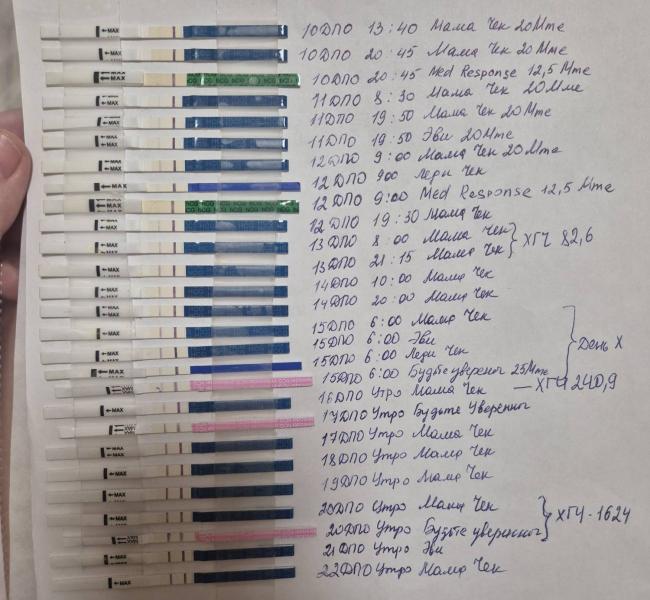 10 ДПО 13:40 Мама Чек 20 Мте
10 ДПО 20:45 Мама Чек 20 Мте
10 ДПО 20:45 Med Response 12,5 Мте
11 ДПО 8:30 Мама Чек 20 Мме
11 ДПО 19:50 Мама Чек 20 Мте
11 ДПО 19:50 Эви 20 Мте
12 ДПО 9:00 Мама Чек 20 Мте
12 ДПО 900 Леди Чек
12 ДПО 9:00 Med Response 12,5 Мте
12 ДПО 19:30 Мама Чек
13 ДПО 8:00 Мама Чек
13 ДПО 21:15 Мама Чек
ХГЧ 82,6
14 ДПО 10:00 Мама Чек
14 ДПО 20:00 Мама Чек
15 ДПО 6:00 Мама Чек
15 ДПО 6:00 Эви
15 ДПО 6:00 Леди Чек
15 ДПО 6:00 Будьте уверенног 25 Мте
День X
16 ДПО Утро Мама Чек — ХГЧ 240,9
17 ДПО Утро Будьте Уверенног
17 ДПО Утро Мама Чек
18 ДПО Утро Мама Чек
19 ДПО Утро Мама Чек
20 ДПО Утро Мама Чек
20 ДПО Утро Будьте уверенног
ХГЧ - 1624
21 ДПО Утро Эви
22 ДПО Утро Мама Чек